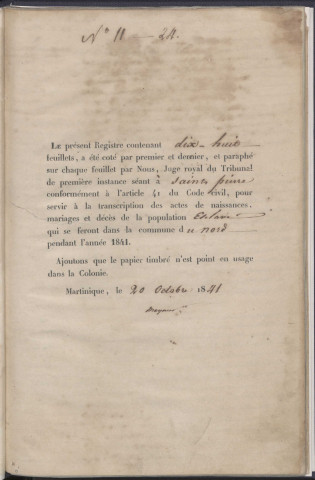 N° 11
LE présent Registre contenant dix-huit
feuillets, a été coté par premier et dernier, et paraphé
sur chaque feuillet par Nous, Juge royal du Tribunal
de première instance séant à Saint pierre
conformément à l'article 41 du Code civil, pour
servir à la transcription des actes de naissances,
mariages et décès de la population Esclave
qui se feront dans la commune du nord
pendant l'année 1841.
Ajoutons que le papier timbré n'est point en usage
dans la Colonie.
Martinique, le 20 Octobre 1841